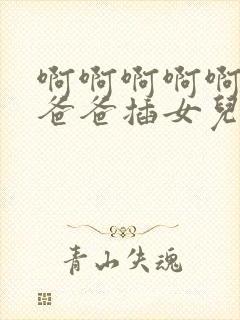 啊啊啊啊啊
爸爸插女兒
青山失魂